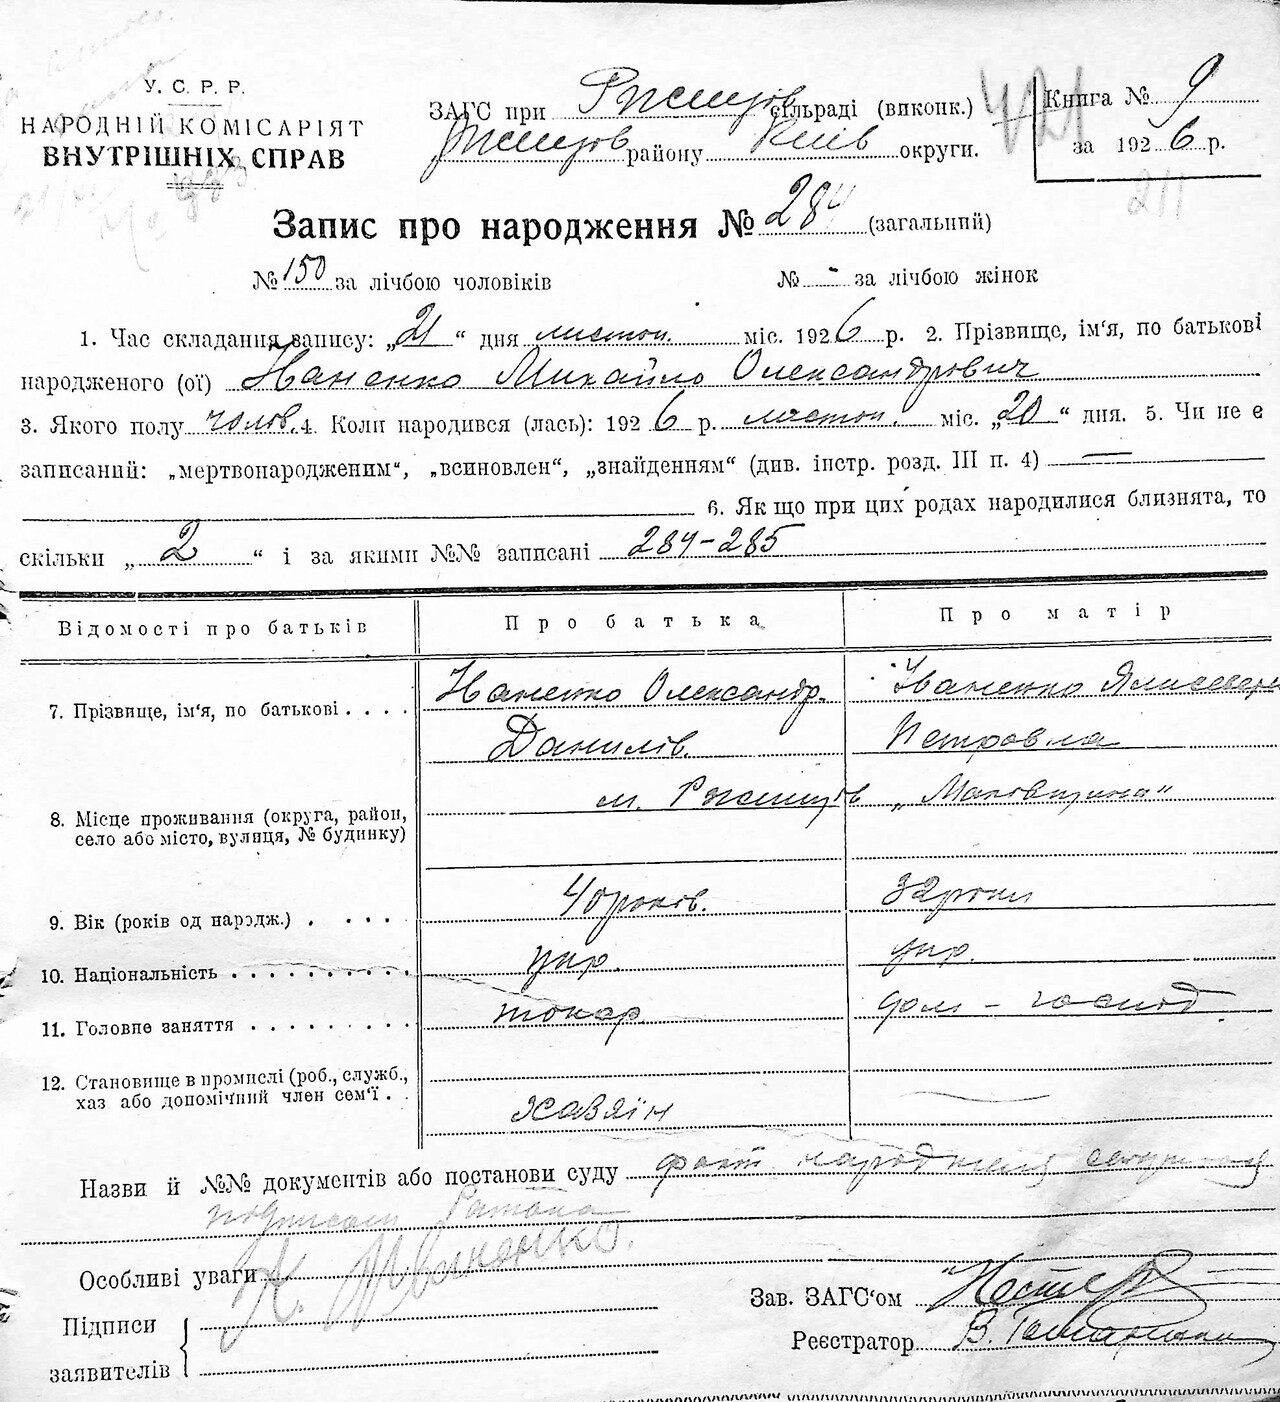 У. С. Р. Р.
НАРОДНІЙ КОМІСАРІЯТ
ВНУТРІШНІХ СПРАВ
ЗАГС при Ржищов сільраді (виконк.)
Ржищов району Київ округи.
421
Книга № 9
за 1926 р.
211
Запис про народження № 284 (загальний)
№ 150 за лічбою чоловіків № - за лічбою жінок
1. Час складання запису: „21“ дня листоп. міс. 1926 р. 2. Прізвище, ім‘я, по батькові
народженого (ої) Іваненко Михайло Олександрович
3. Якого полу чолов. 4. Коли народився (лась): 1926 р. листоп. міс. „20“ дня. 5. Чи не є
записаний: „мертвонародженим“, „всиновлен“, „знайденням“ (див. інстр. розд. III п. 4) —
6. Як що при цих родах народилися близнята, то
скільки „2“ і за якими №№ записані 284-285
Відомості про батьків Про батька Про матір
7. Прізвище, ім‘я, по батькові . . . . Іваненко Олександр. Іваненко
Данилів. Петровна
8. Місце проживання (округа, район, село або місто, вулиця, № будинку) м. Ржищів
9. Вік (років од народж.) . . . . 40 років. 32 роки
10. Національність . . . . . . . . . . укр. укр.
11. Головне заняття . . . . . . . . . токар дом - господ
12. Становище в промислі (роб., служб., хаз або допомічний член сем‘ї . . хазяїн —
Назви й №№ документів або постанови суду факт народження
подписом
Особливі уваги
А. Иваненко.
Підписи
заявителів
Зав. ЗАГС‘ом
Реєстратор В.